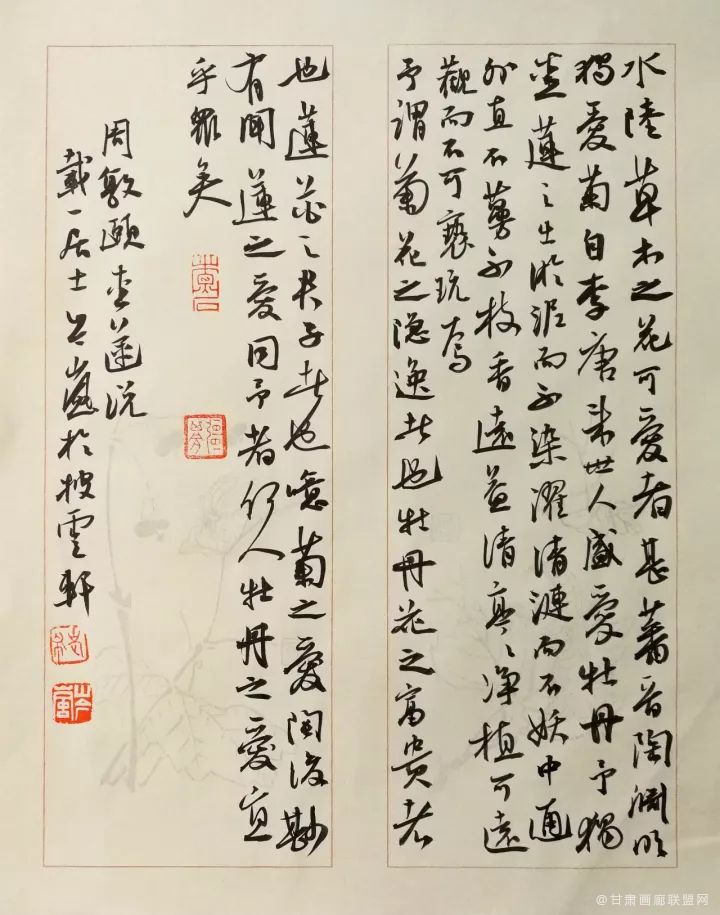 水陸草木之花可愛者甚蕃晉陶渊明
獨愛菊自李唐来世人盛愛牡丹予獨
愛蓮之出淤泥而不染濯清漣而不妖中通
外直不蔓不枝香遠益清亭〻净植可遠
觀而不可褻玩焉
予謂菊花之隐逸者也牡丹花之富贵者
也蓮花之君子者也噫菊之愛陶後尠
有聞蓮之愛同予者何人牡丹之愛宜
乎眾矣
周敦颐愛蓮说
戴一居士於披雲軒
@甘肃画廊联盟网